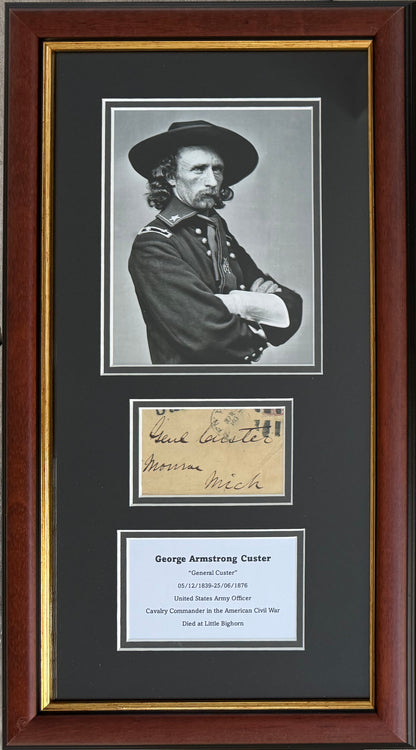 Genl Custer
Monroe
Mich
George Armstrong Custer
"General Custer"
05/12/1839-25/06/1876
United States Army Officer
Cavalry Commander in the American Civil War
Died at Little Bighorn